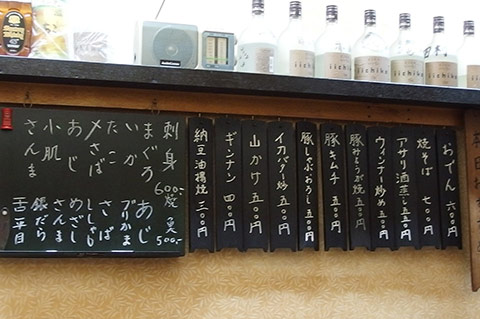 iichiko
iichiko
iichiko
iichiko
おでん 六〇〇円
焼そば 七〇〇円
アサリ酒蒸し 五五〇円
ウィンナー炒め 五〇〇円
豚しょうが焼 五五〇円
豚キムチ 五五〇円
豚しゃぶおろし 五五〇円
イカバター炒 五〇〇円
山かけ 五〇〇円
ギンナン 四〇〇円
納豆油揚焼 三〇〇円
刺身 600-
まぐろ
いか
たこ
〆さば
あじ
小肌
さんま
焼魚 500-
あじ
ぶりかま
さば
ししゃも
めざし
さんま
銀だら
舌平目